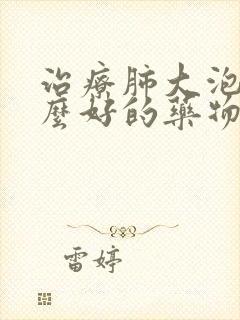 治療肺大泡
麼好的藥物
雷婷